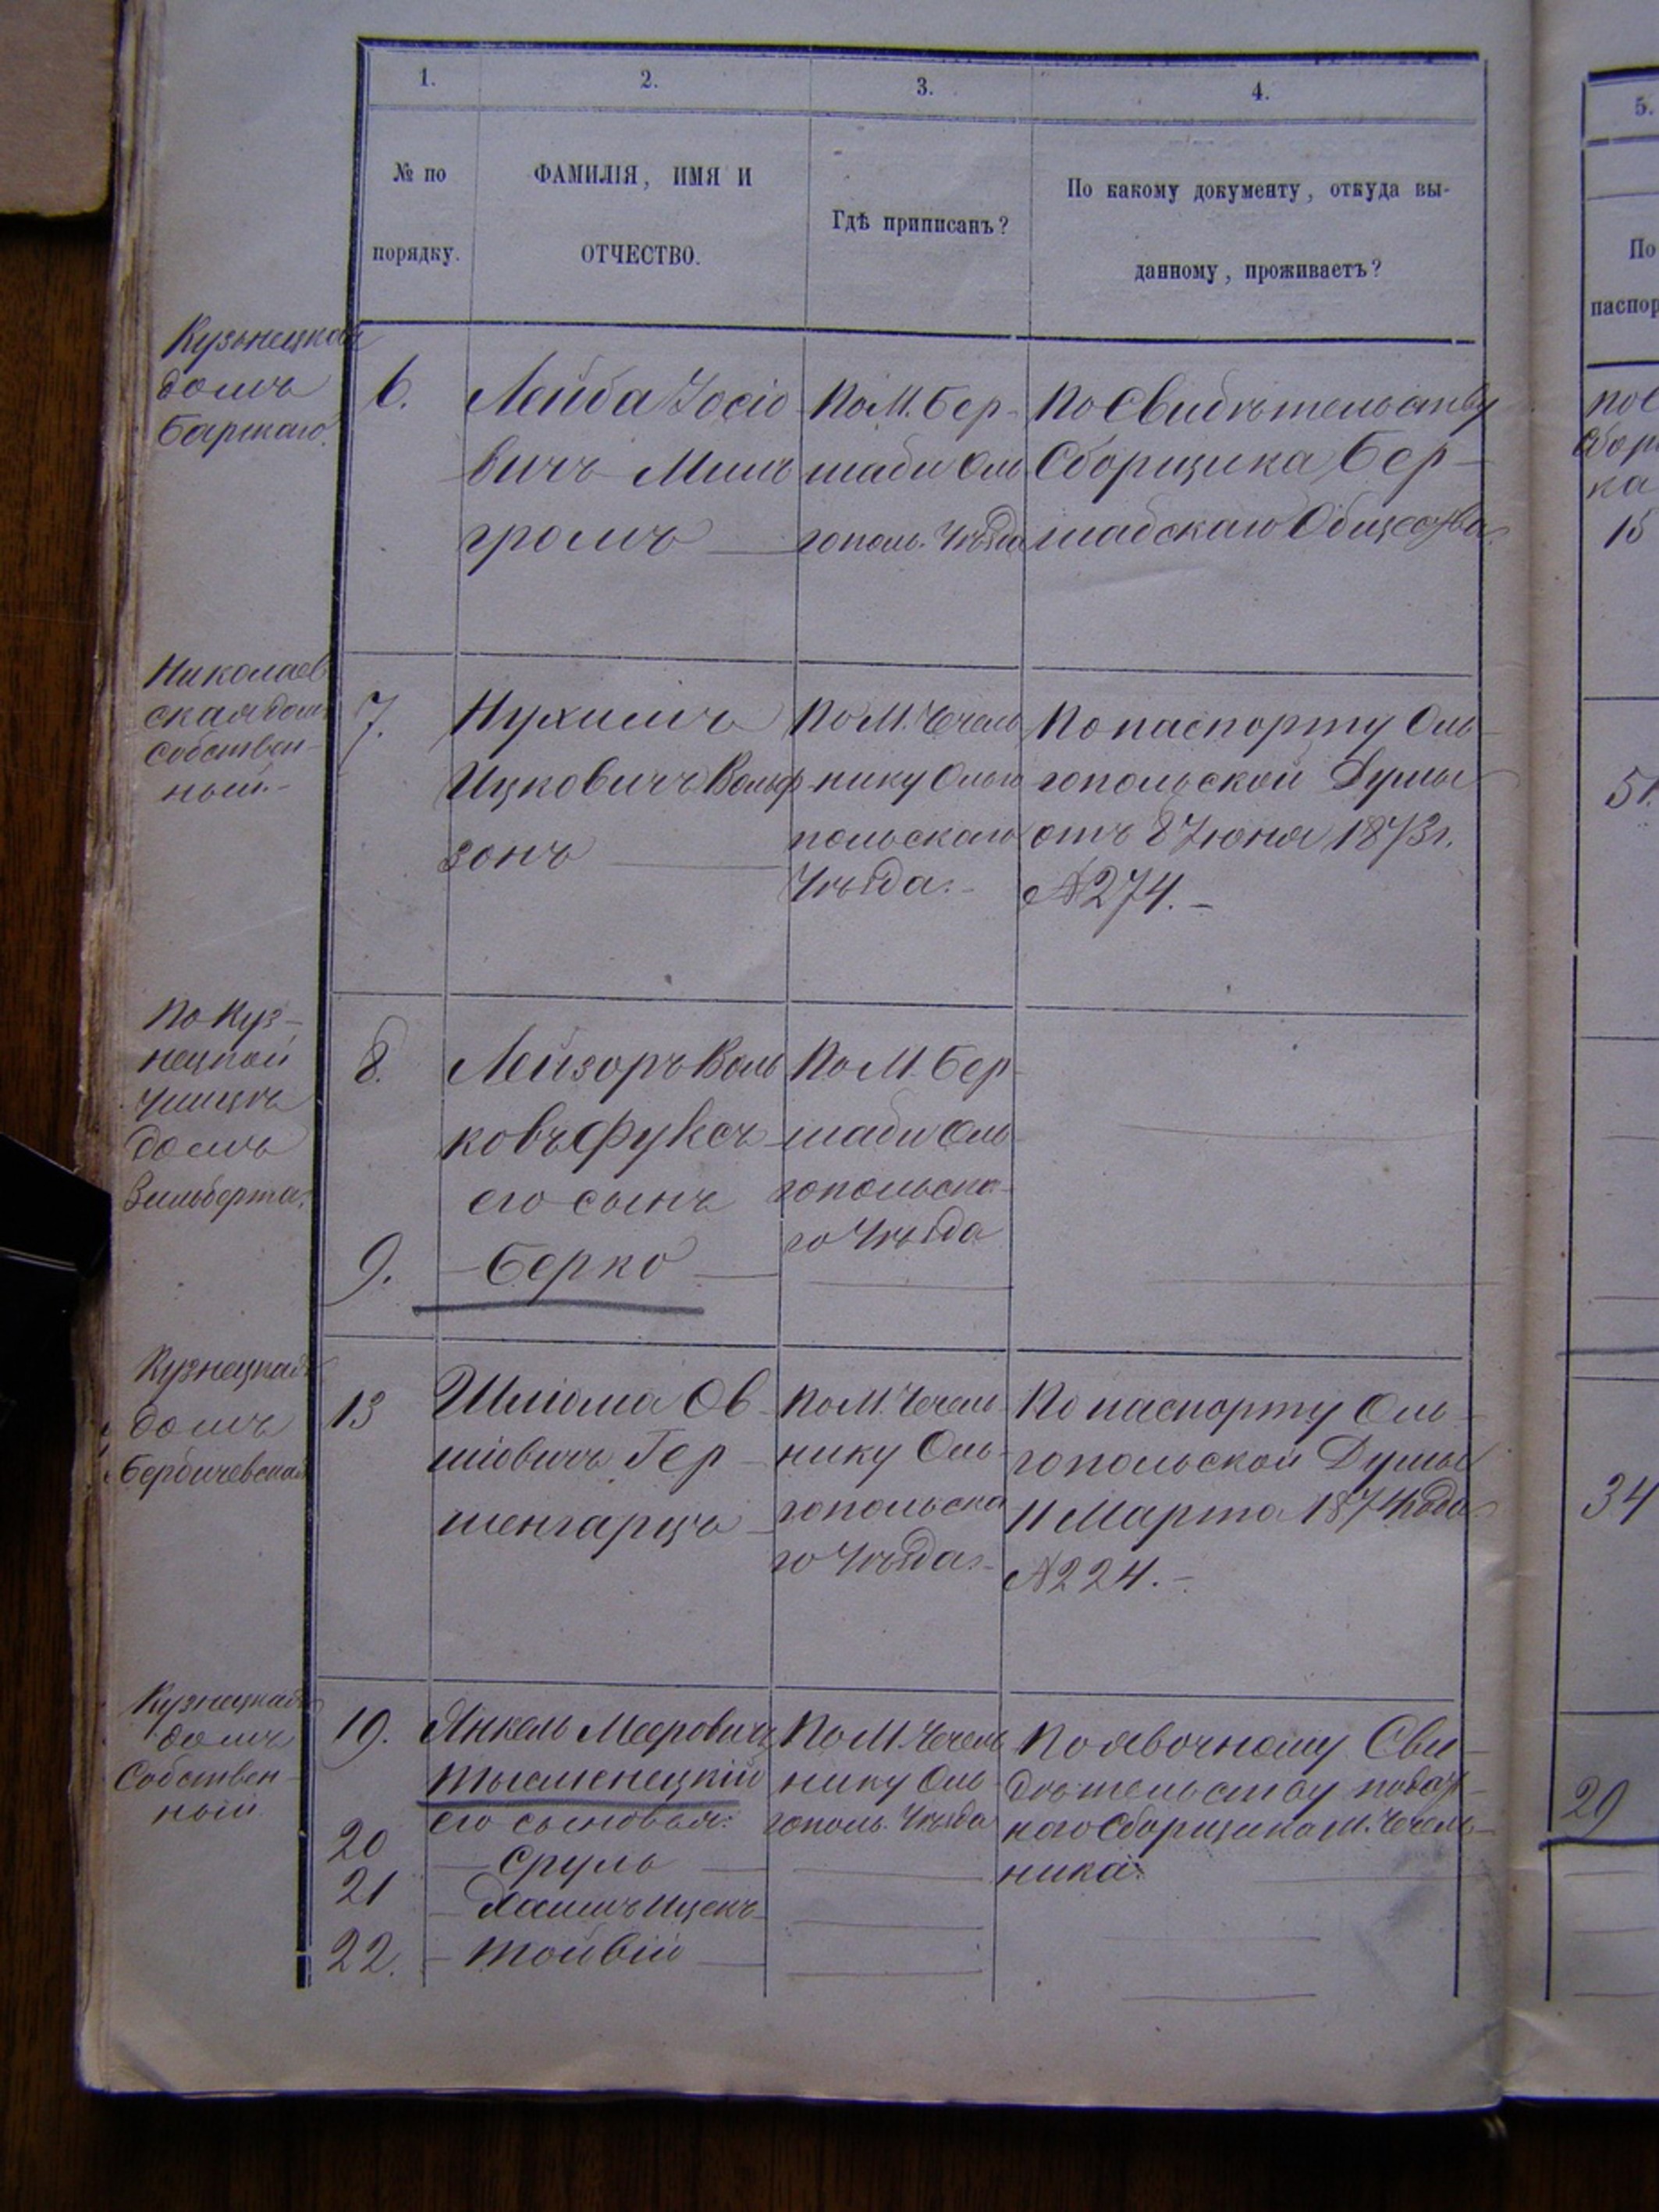 1.
2.
3.
4.
№ по
порядку.
ФАМИЛІЯ, ИМЯ И
ОТЧЕСТВО.
Гдѣ приписанъ?
По какому документу, откуда вы-
данному, проживаетъ?
Кузьнецкая
домъ
Барскаго.
6.
Лейба Іосіо
вичъ Миль
громъ
По М. Бер-
шади Оль
гополь. Уѣзда
По Свидѣтельству
Сборщика Бер-
шадскаго Общества
Николаев
ская домъ
собствен-
ный.-
7.
Нухимъ
Ицковичъ Вольф
зонъ
По М. Чечель
нику Ольго
польскаго
Уѣзда.-
По паспорту Оль-
гопольской Думы
отъ 8 Іюня 1873 г.
№ 274.-
По Куз-
нецкой
улицѣ
домъ
Зильберта.
8.
Лейзоръ Воль
ковъ Фуксъ
его сынъ
9.
— Берко —
По М. Бер-
шади Оль
гопольска-
го Уѣзда
Кузнецкая
домъ
Бердичевская
13
Шліома Ов-
шіовичъ Гер-
шенгарцъ
По М. Чечель-
нику Оль-
гопольска
го Уѣзда.-
По паспорту Оль-
гопольской Думы
11 Марта 1874 года
№ 224.-
Кузнецкая
домъ
Собствен-
ный.
19.
Янкель Мееровичъ
Тысменецкій
его сыновья:
20
— Сруль —
21
— Хаимъ Ицекъ
22.
— Тойвій —
По М. Чечель
нику Оль-
гополь. Уѣзда
По явочному Сви-
дѣтельству подат-
ного Сборщика м. Чечель-
ника.
5.
По
паспор
по С
сбор
ка
15
51.
34
29